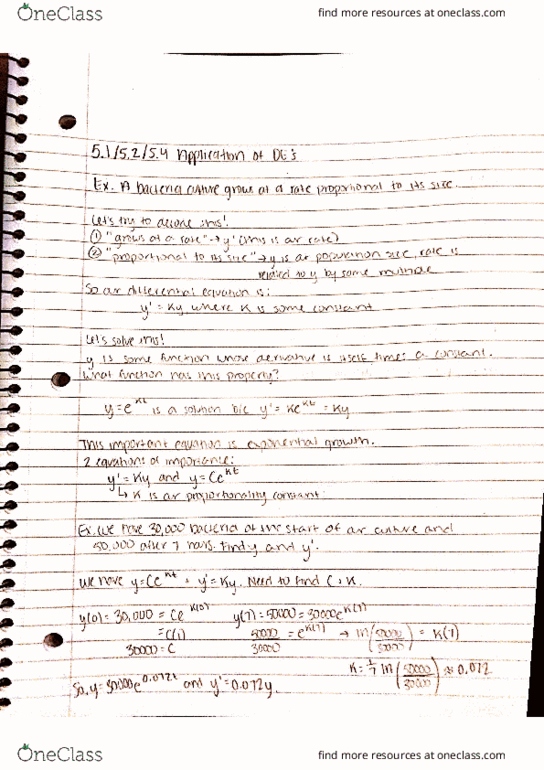 OneClass find more resources at oneclass.com
5.1/5.2/5.4 Application of DE's
Ex. A bacteria culture grows at a rate proportional to its size.
Let's try to decode this!
① "grows at a rate" → y' (this is ar rate)
② "proportional to its size" → y is ar population size, rate is
related to y by some multiple
So ar differential equation is:
y' = Ky where K is some constant
Let's solve this!
y is some function whose derivative is itself times a constant.
What function has this property?
y=e^Kt is a solution b/c y' = Ke^Kt = Ky
This important equation is exponential growth.
2 equations of importance:
y'=Ky and y=Ce^Kt
↳ K is ar proportionality constant
Ex. We have 30,000 bacteria at the start of ar culture and
50,000 after 7 hours. Find y and y'.
We have y=Ce^Kt, y'=Ky. Need to find C, K.
y(0)=30,000 = Ce^K(0) y(7)=50000=30000e^K(7)
=C(1) 50000/30000 = e^K(7) → ln(50000/30000) = K(7)
30000=C K=1/7 ln(50000/30000) ≈ 0.072
So, y=30000e^0.072t and y'=0.072y.
OneClass find more resources at oneclass.com